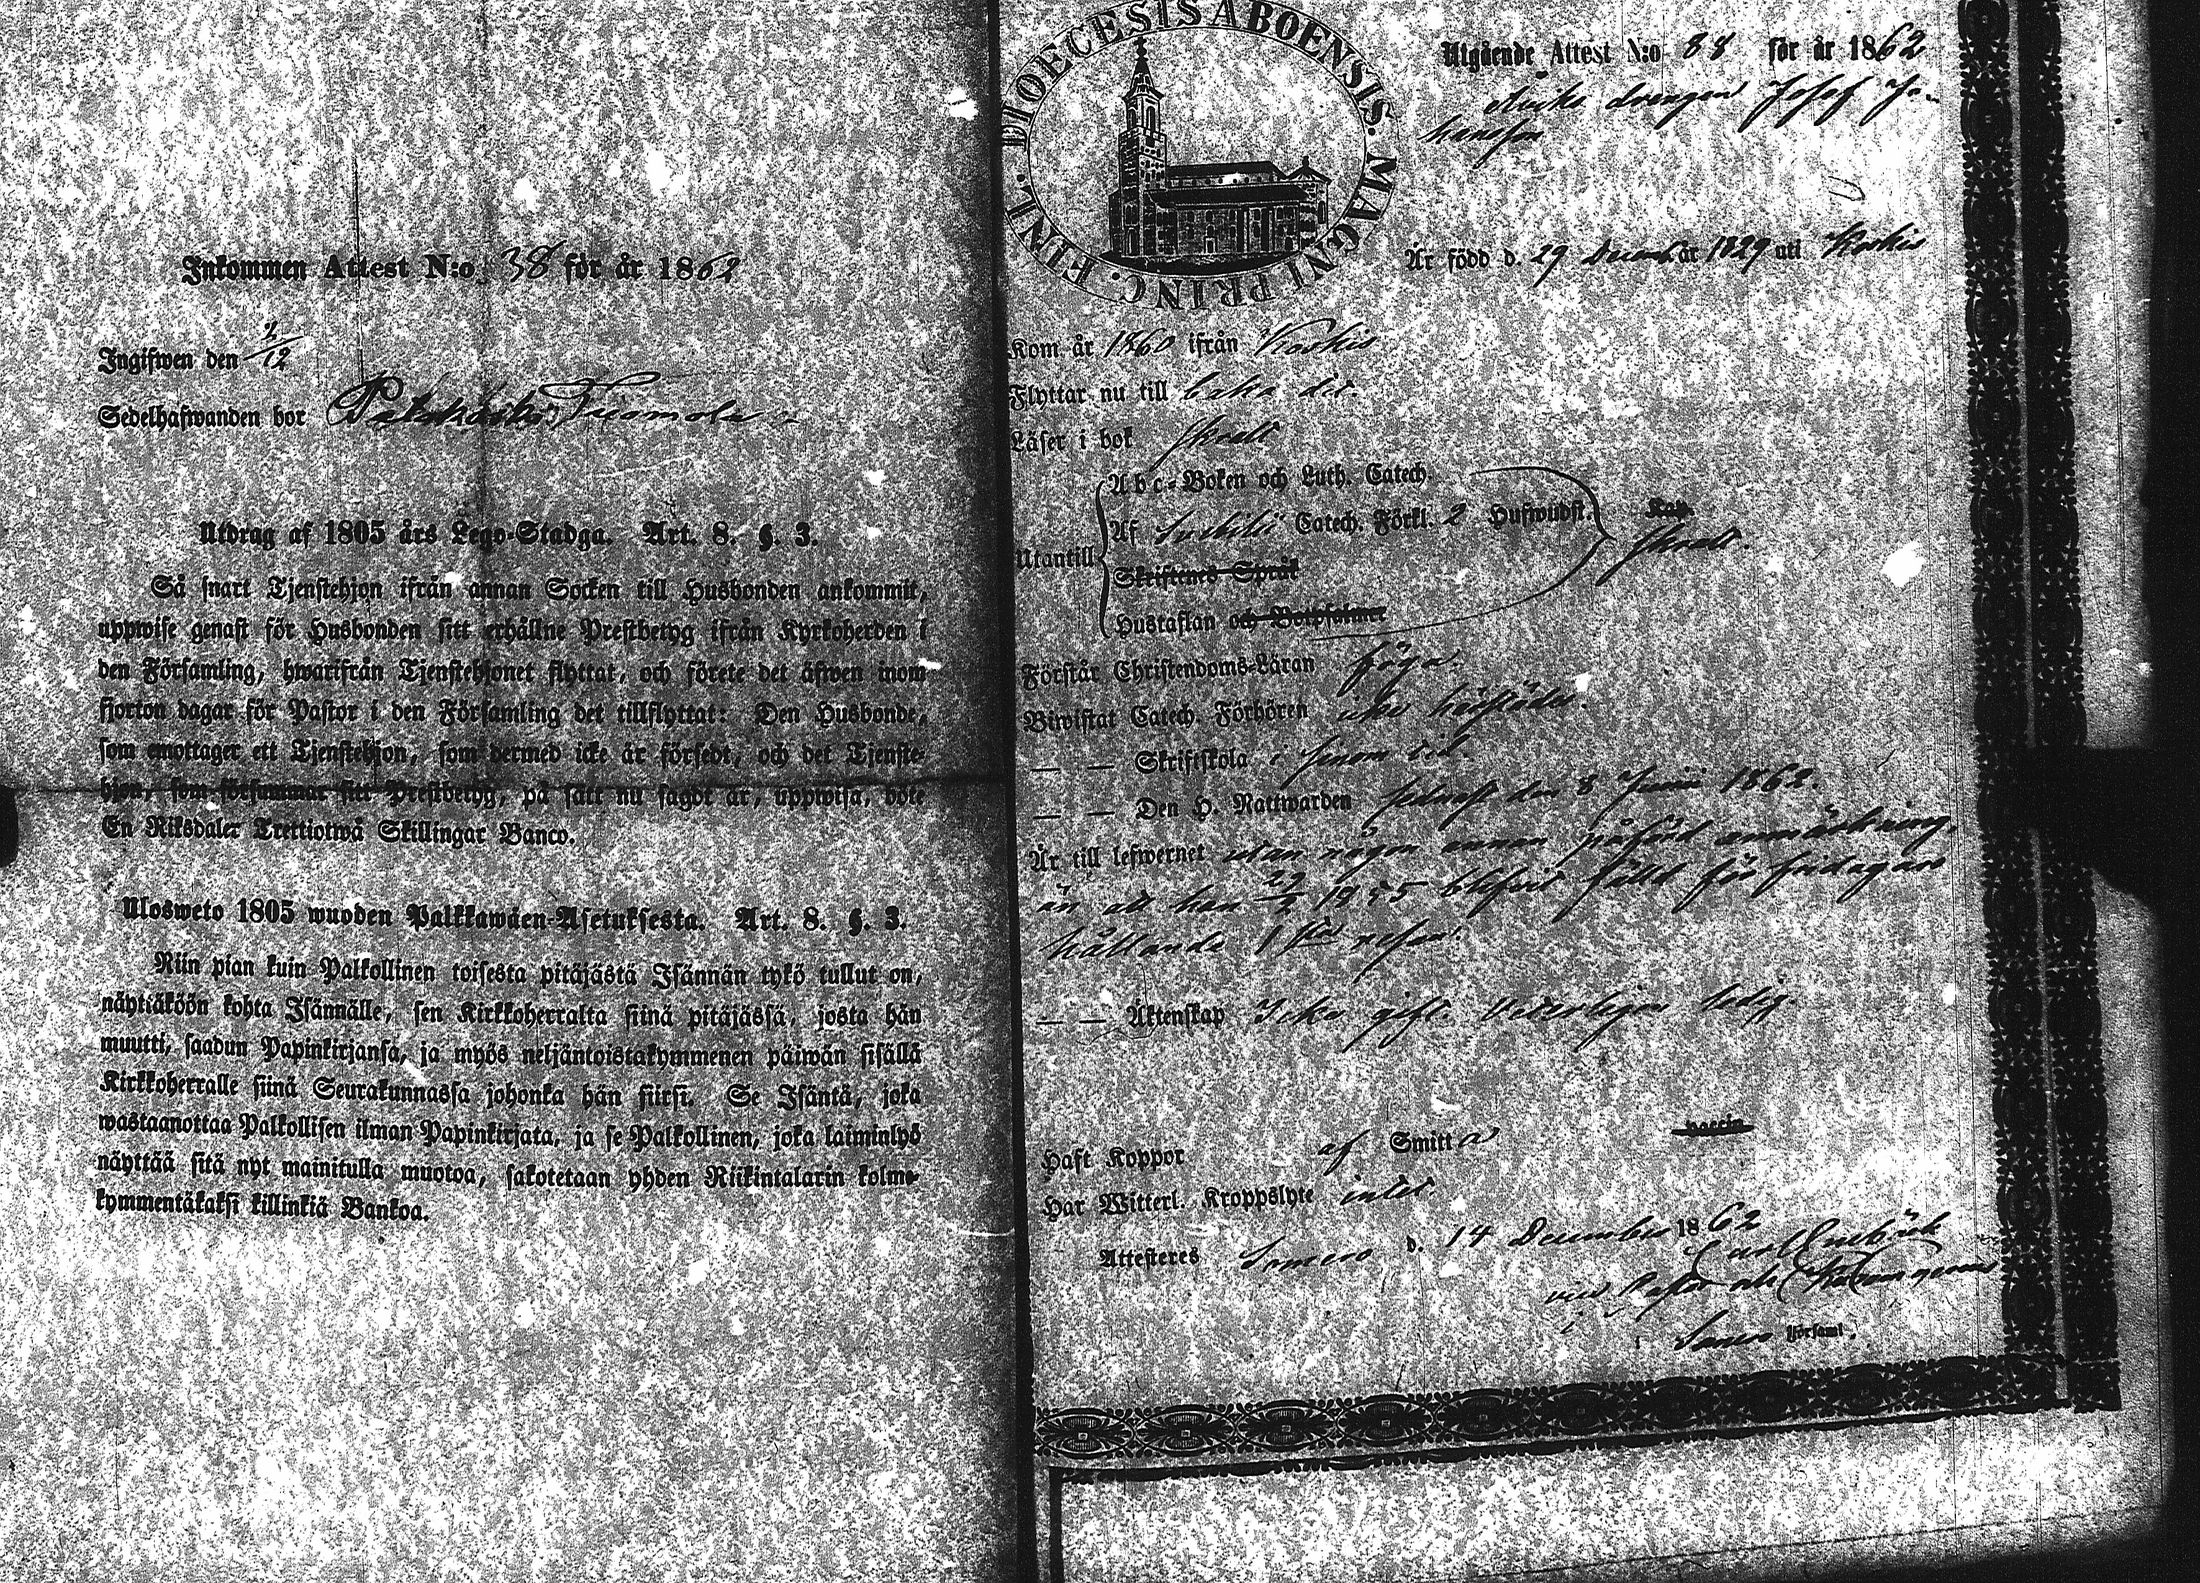 Inkommen Attest N:o 38 för år 1862
Ingifwen den 2/12
Sedelhafwanden bor
Utdrag af 1805 års Lego-Stadga. Art. 8. §. 3.
Så snart Tjenstehjon ifrån annan Socken till Husbonden ankommit,
uppwise genast för Husbonden sitt erhållne Prestbetyg ifrån Kyrkoherden i
den Församling, hwarifrån Tjenstehjonet flyttat, och förete det äfwen inom
fjorton dagar för Pastor i den Församling det tillflyttat: Den Husbonde,
som emottager ett Tjenstehjon, som dermed icke är försedt, och det Tjenste-
hjon, som försummar sitt Prestbetyg, på sätt nu sagdt är, uppwisa, böte
En Riksdaler Trettiotwå Skillingar Banco.
Ulosweto 1805 wuoden Palkkawäen-Asetuksesta. Art. 8. §. 3.
Niin pian kuin Palkollinen toisesta pitäjästä Isännän tykö tullut on,
näyttäköön kohta Isännälle, sen Kirkkoherralta siinä pitäjässä, josta hän
muutti, saadun Papinkirjansa, ja myös neljäntoistakymmenen päiwän sisällä
Kirkkoherralle siinä Seurakunnassa johonka hän siirsi. Se Isäntä, joka
wastaanottaa Palkollisen ilman Papinkirjata, ja se Palkollinen, joka laiminlyö
näyttää sitä nyt mainitulla muotoa, sakotetaan yhden Riikintalarin kolme-
kymmentäkaksi killinkiä Bankoa.
FINL. DIOECESIS ABOENSIS. MAGNI PRINC.
Utgående Attest N:o 88 för år 1862
drengen Josef Jo-
hansson
Är född d. 29 Decemb. år 1829 uti Koskis
Kom år 1860 ifrån Koskis
Flyttar nu till baka dit.
Läser i bok svalt
Utantill
Abc-Boken och Luth. Catech.
Af Svebilii Catech. Förkl. 2 Hufwudst. Kap.
svalt.
Skriftenes Språk
Hustaflan och Botpsalmer
Förstår Christendoms-Läran föga.
Biwistat Catech. Förhören icke härstädes.
— — Skriftskola i sinom tid.
— — Den H. Nattwarden sednast den 8 Junii 1862.
Är till lefwernet utan någon annan påförd anmärkning,
än att han 1855 blifvit fälld för
hållande 1 resan.
— — Äktenskap Icke gift. ledig.
Haft Koppor af Smitta vaccin
Har Witterl. Kroppslyte intet.
Attesteres Somero d. 14 December 1862
Carl
vice Pastor
i Somero Församl.